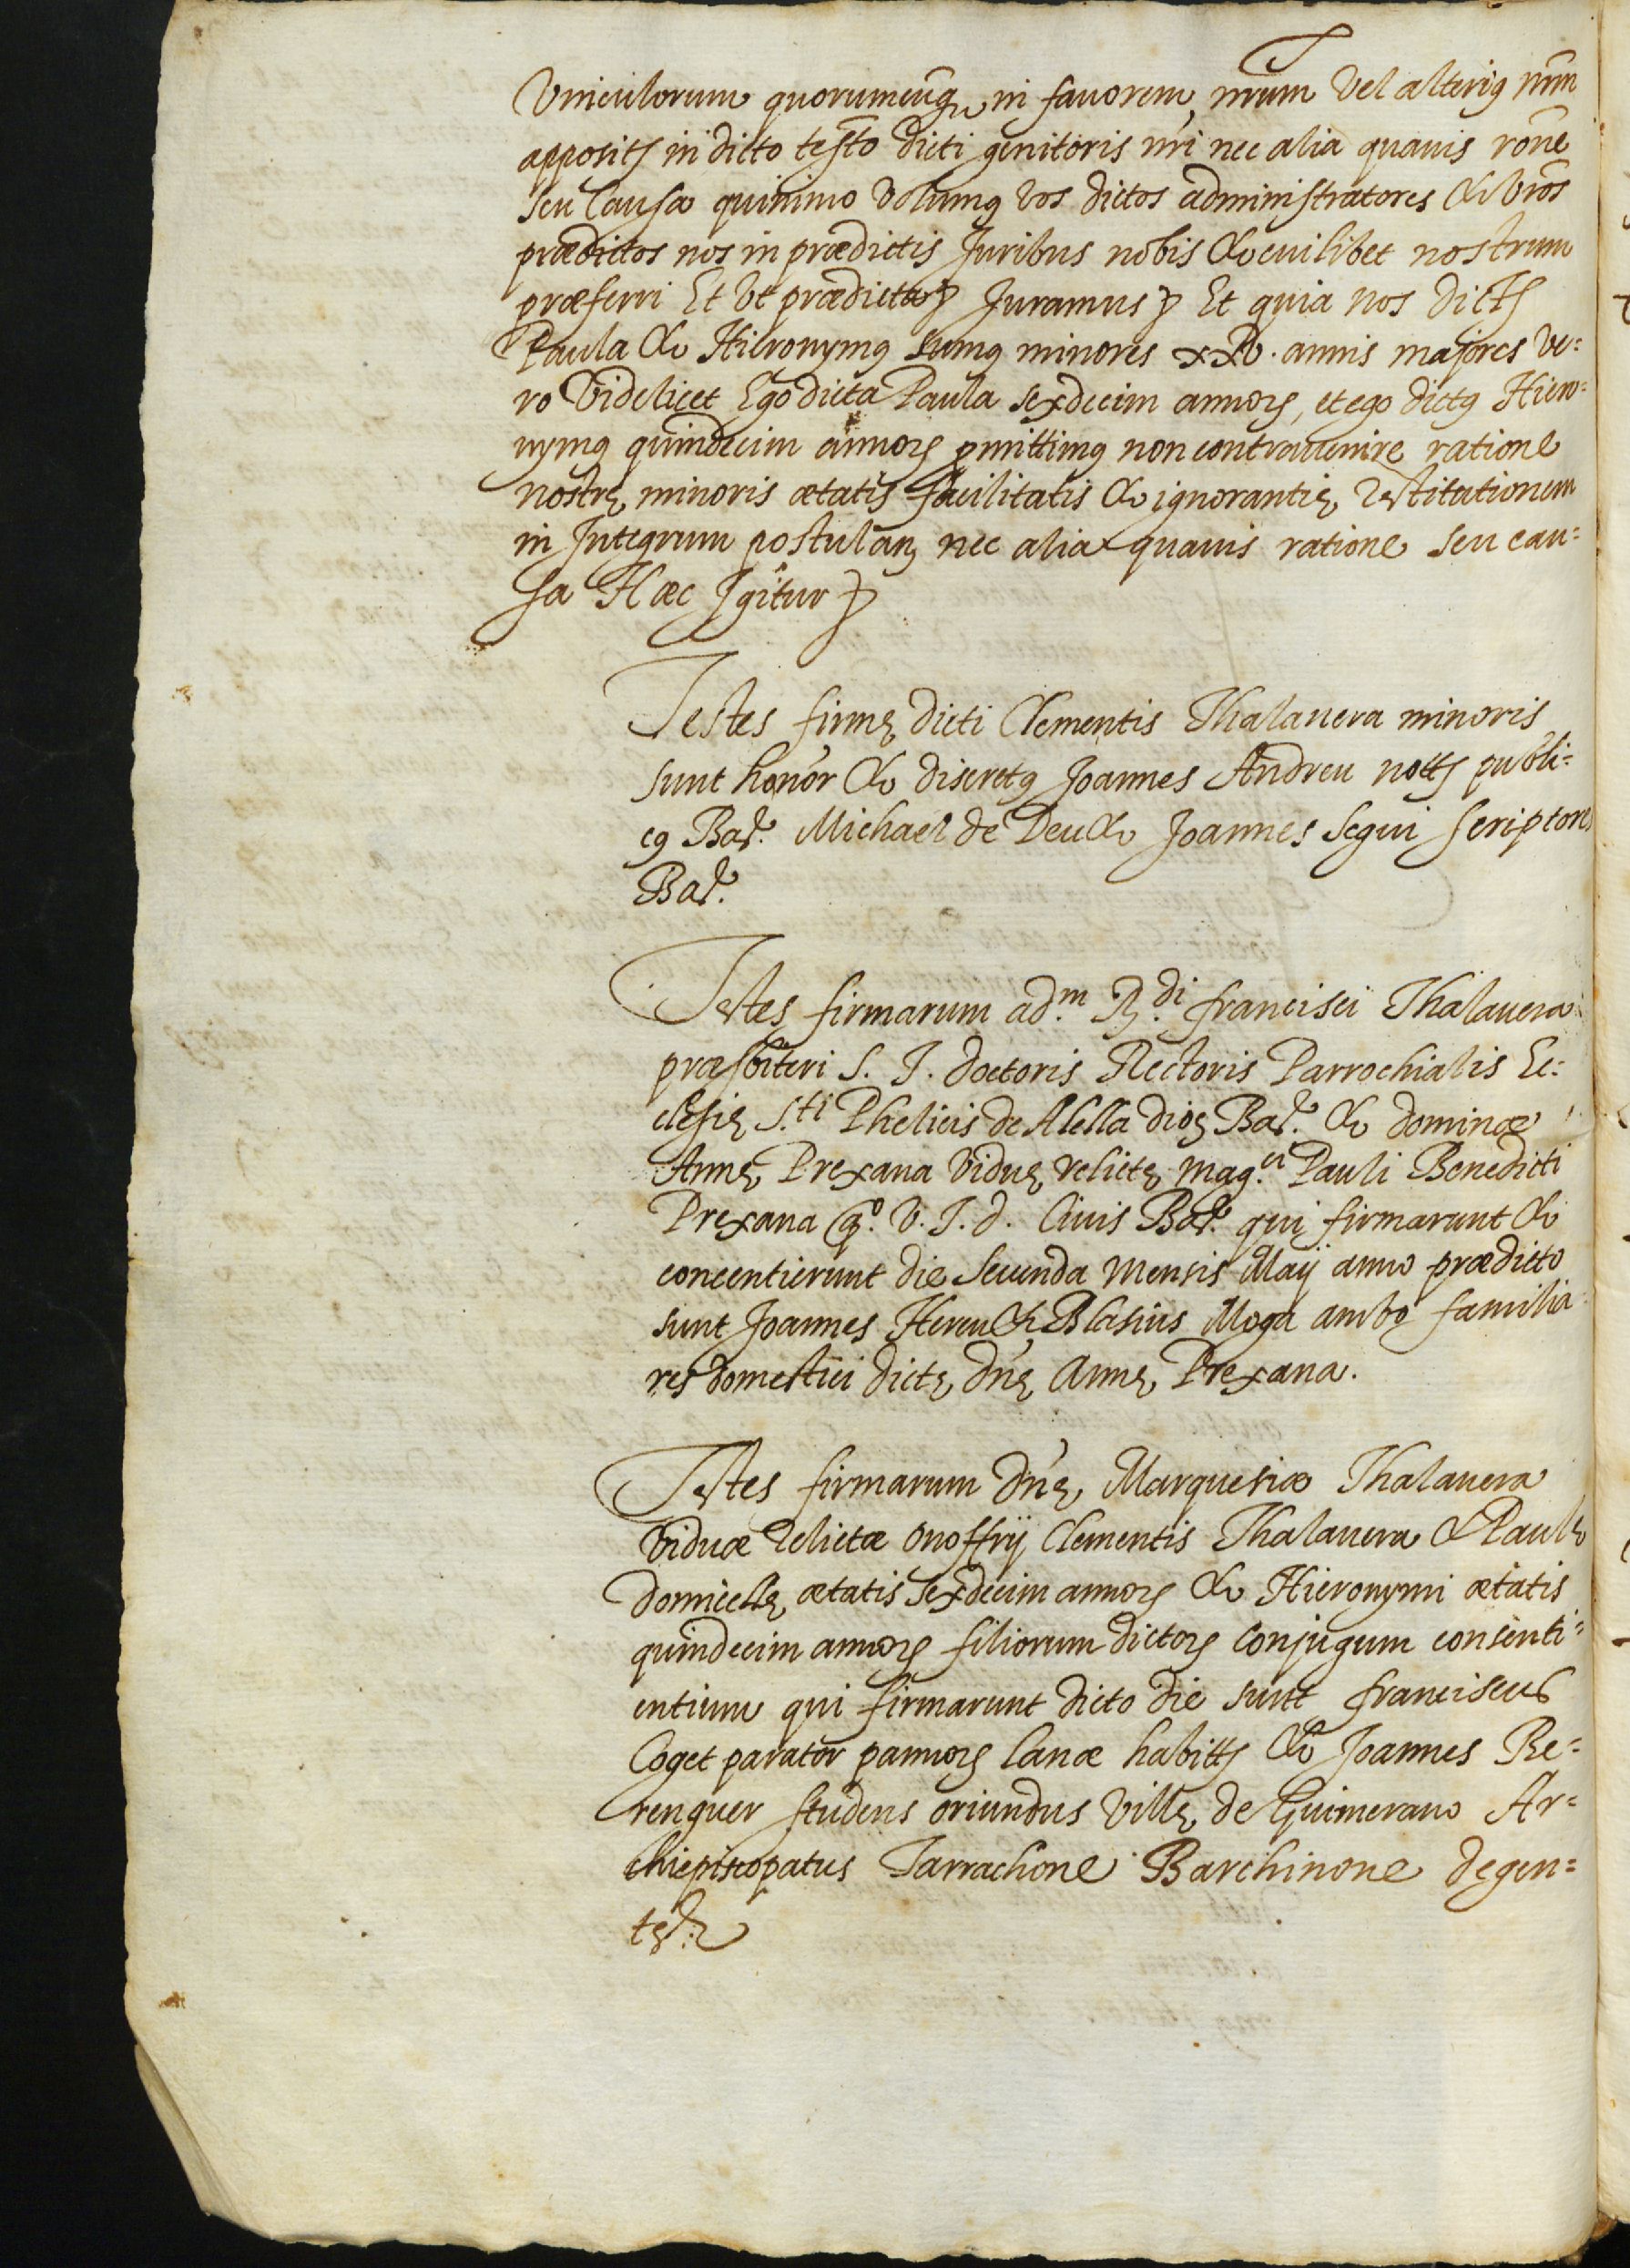 Vinculorum quorumcunq in fauorem nrūm Vel alteriꝯ nrm̄
appositꝭ in dicto testō dicti genitoris nr̄i nec alia quauis rōne
seu Causa quinimo Volumꝯ Vos dictos administratores & Vrōs
prædictos nos in prædictis Juribus nobis & cuilibet nostrum
præferri Et Vt prædicta ꝑ Juramus ꝑ Et quia nos dictꝭ
Paula & Hieronymꝯ sumꝯ minores xxv. annis majores Ve=
ro Videlicet Ego dicta Paula sexdecim annorꝝ, et ego dictꝯ Hiero=
nymꝯ quindecim annorꝝ ꝓmittimꝯ non contrauenire ratione
nostrę minoris ætatis facilitatis & ignorantię, restitutionem
in Integrum postulanꝫ nec alia quauis ratione seu cau=
sa Hæc Igitur ꝑ
Testes firmę dicti Clementis Thalauera minoris
sunt honor & discretꝯ Joannes Andreu nottꝭ publi=
cꝯ Bar. Michael de Deu & Joannes Segui scriptores
Bar.
Testes firmarum ad.m R.di francisci Thalauera
præsbiteri S. T. doctoris Rectoris Parrochialis Ec=
clesię S.ti Phelicis de Alella dioꝫ Bar. & dominæ
Annę Prexana Viduę relictę mag.ci Pauli Benedicti
Prexana qo. V. J. d. Ciuis Bar. qui firmarunt &
concentierunt die Secunda mensis Maij anno prædicto
sunt Joannes Hereu & Blasius Moga ambo familia=
res domestici dictę dn̄ę Annę Prexana.
Testes firmarum dn̄ę Marquesiæ Thalauera
Viduæ relictæ onoffrij Clementis Thalauera & Paulę
domicellę ætatis sexdecim annorꝝ & Hieronymi ætatis
quindecim annorꝝ filiorum dictorꝝ Conjugum consenti=
entium qui firmarunt dicto die sunt franciscus
Coget parator pannorꝝ lanæ habittꝭ & Joannes Be=
renguer studens oriundus Villę de Guimerano Ar=
chiepiscopatus Tarrachone Barchinone degen=
tes